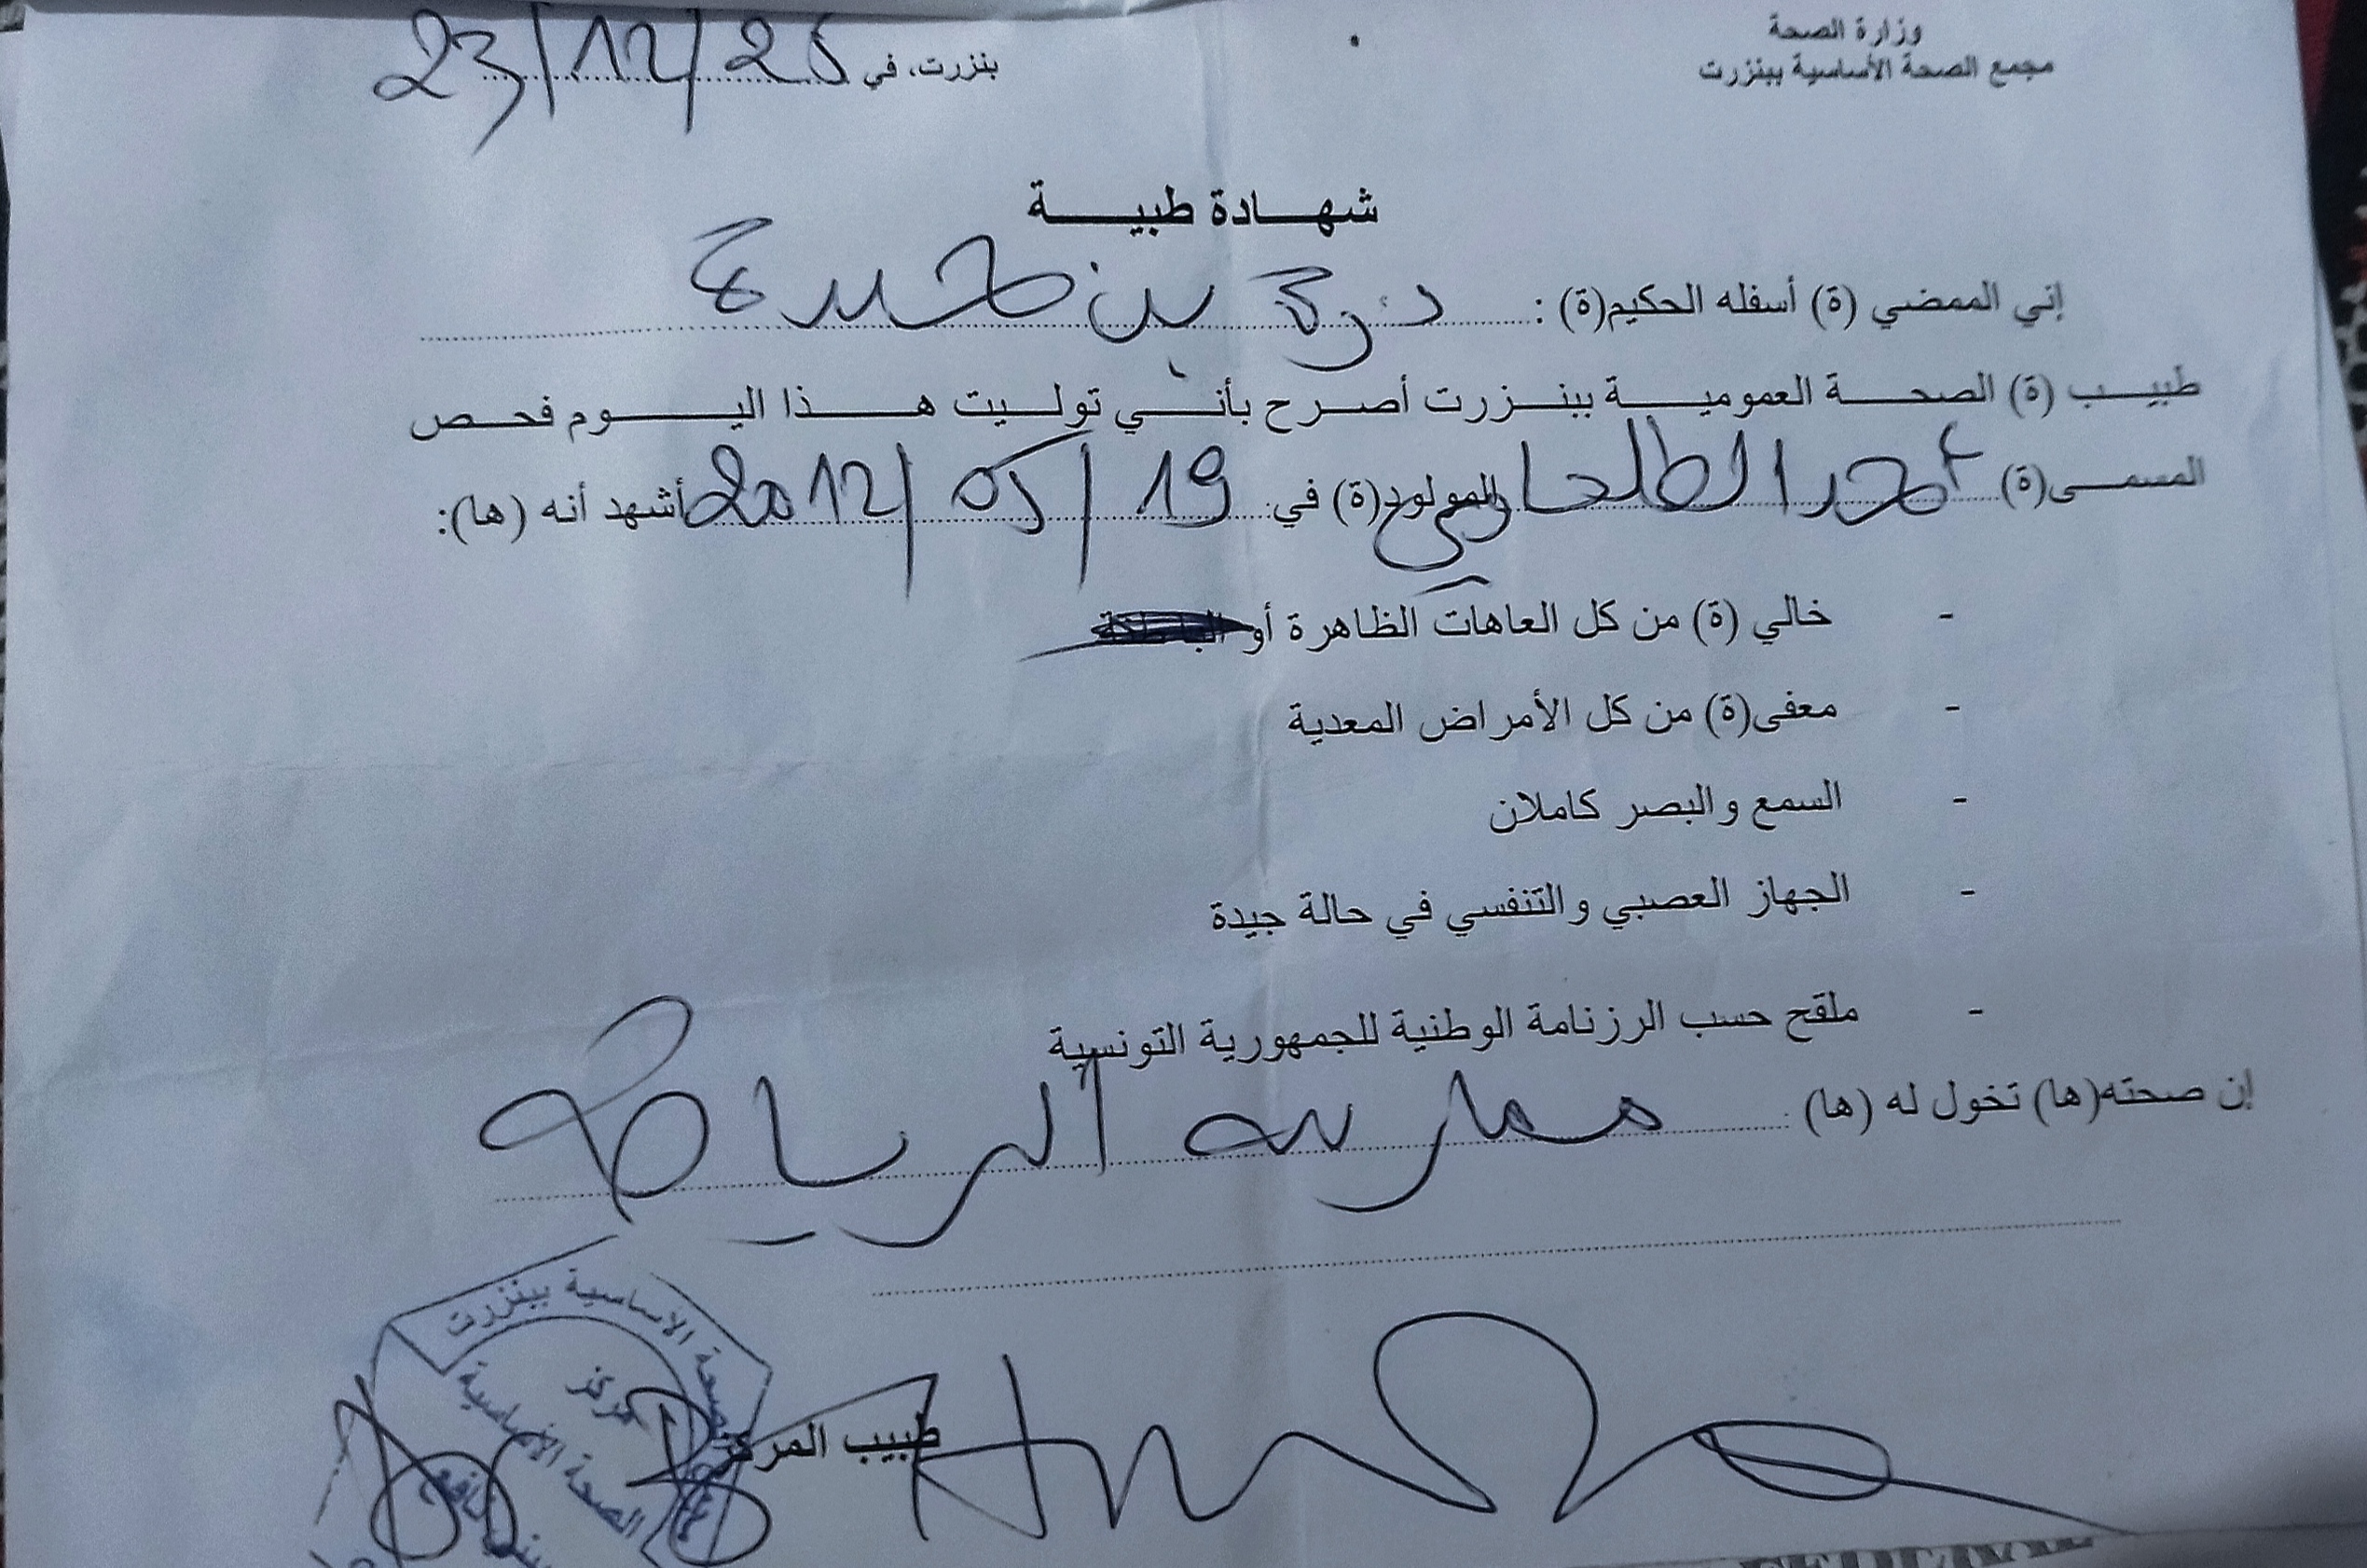 وزارة الصحة
مجمع الصحة الأساسية ببنزرت
بنزرت، في 23/12/25
شهادة طبية
إني الممضي (ة) أسفله الحكيم(ة) : د. بن حميدة
طبيب (ة) الصحة العمومية ببنزرت أصرح بأني توليت هذا اليوم فحص
المسمى(ة) الطلحاوي المولود(ة) في: 19/05/2012 أشهد أنه (ها):
- خالي (ة) من كل العاهات الظاهرة أو
- معفى(ة) من كل الأمراض المعدية
- السمع والبصر كاملان
- الجهاز العصبي والتنفسي في حالة جيدة
- ملقح حسب الرزنامة الوطنية للجمهورية التونسية
إن صحته(ها) تخول له (ها) ممارسة الرياضة
طبيب المركز
الصحة الأساسية ببنزرت
مركز
الصحة الأساسية